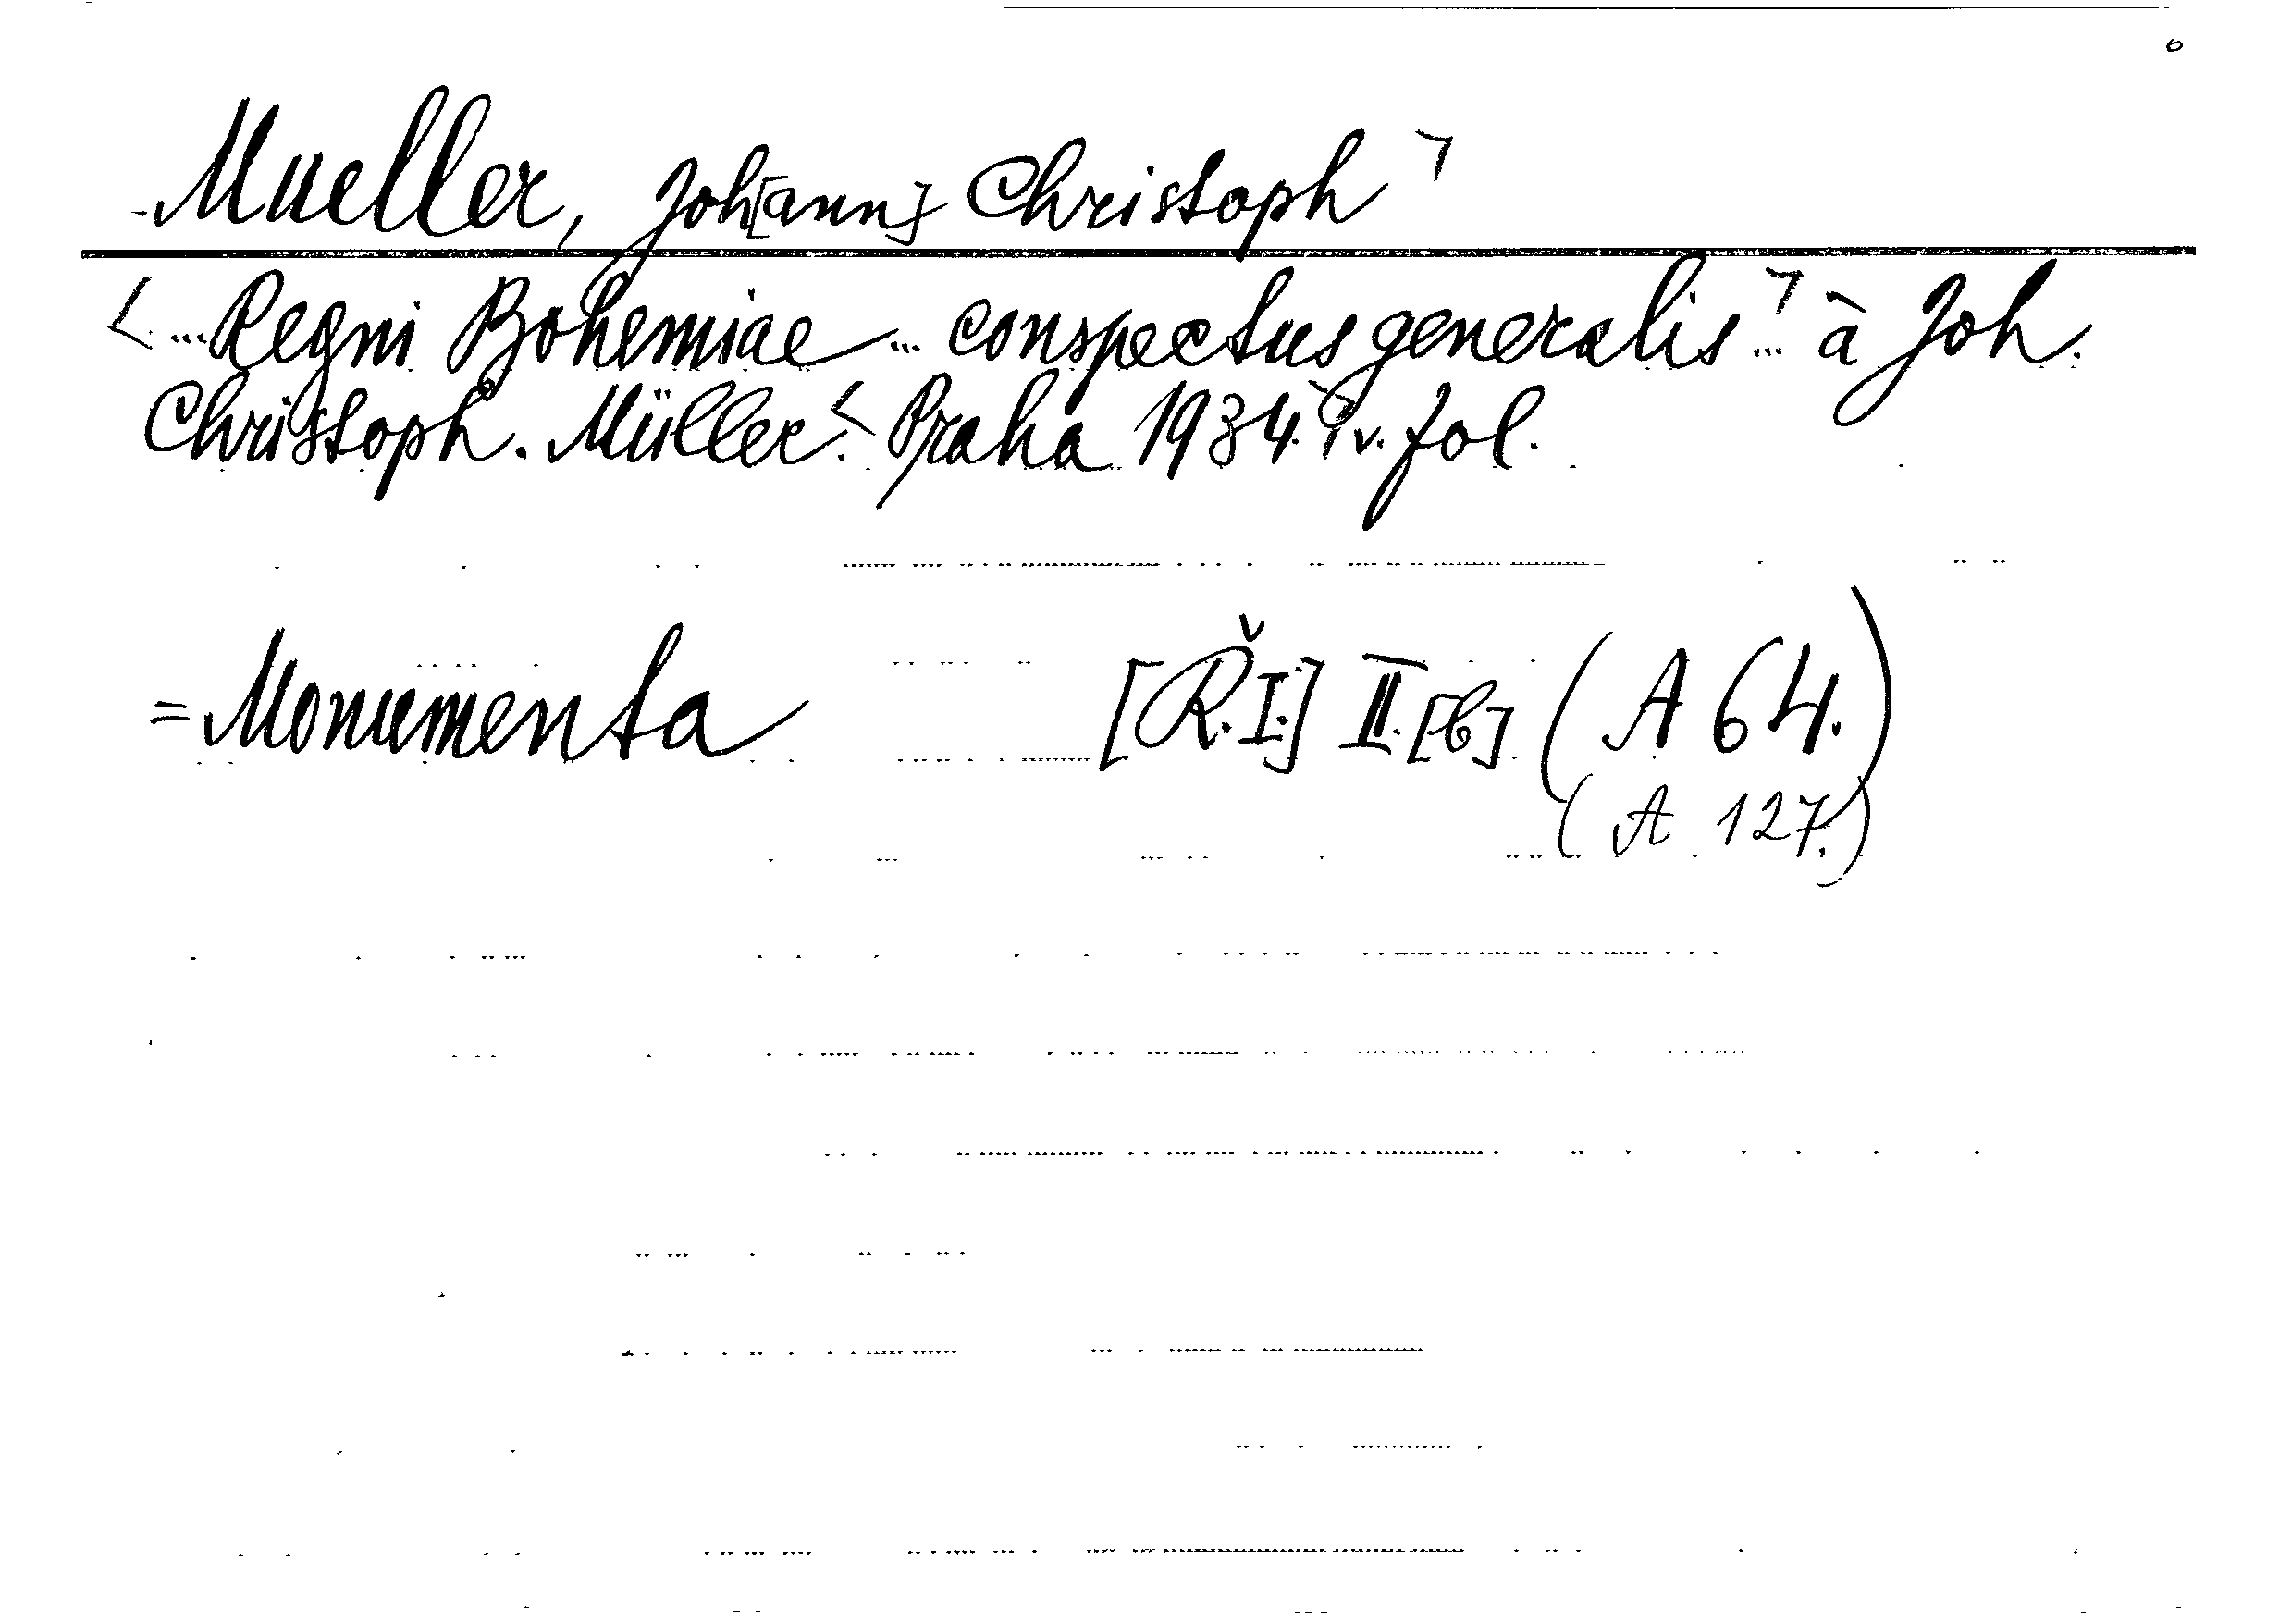 Mueller, Joh[ann] Christoph
...Regni Bohemiae ... conspectus generalis ... à Joh.
Christoph. Müller. Praha 1934. 1 v. fol.
= Monumenta [Ř.I.] II. [b] (A 64.)
(A 127.)